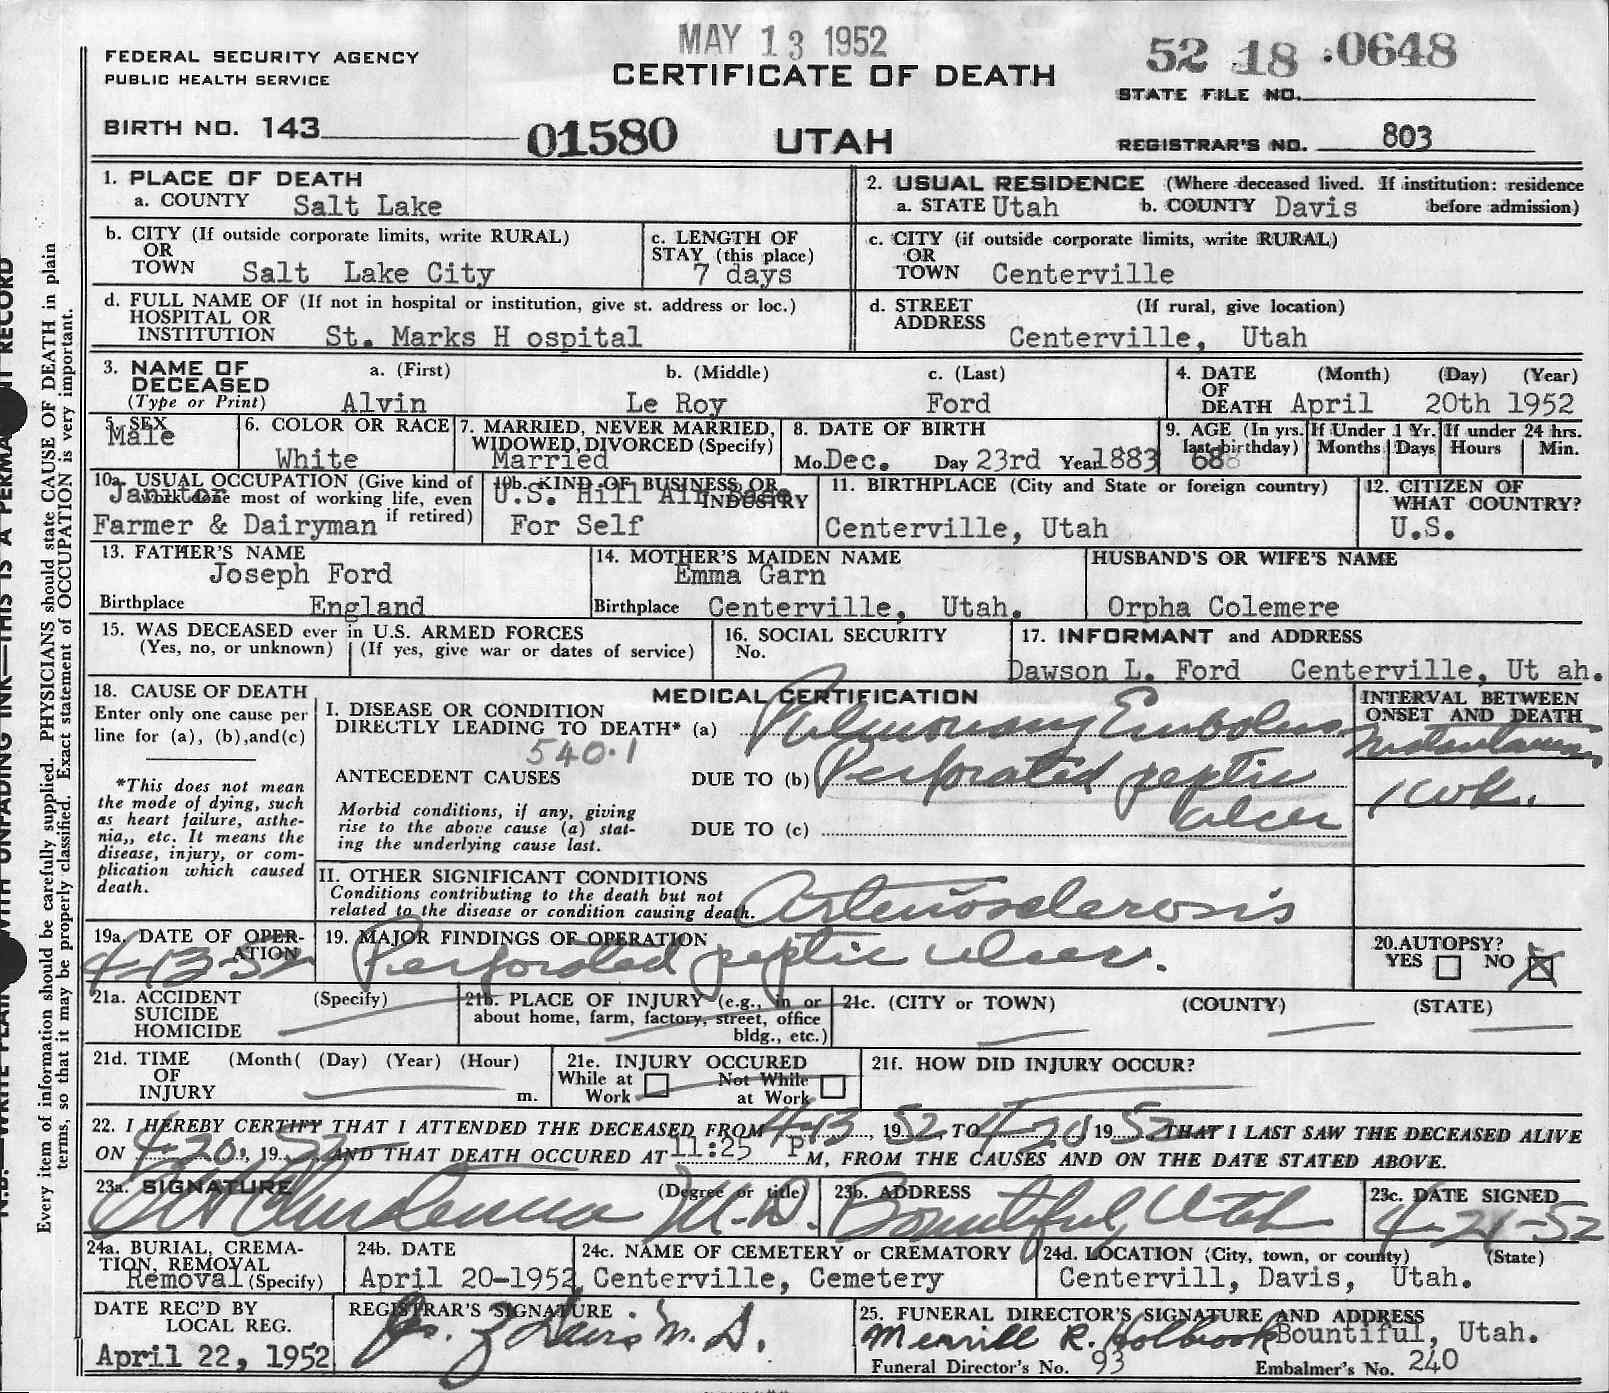 MAY 13 1952
FEDERAL SECURITY AGENCY
PUBLIC HEALTH SERVICE
CERTIFICATE OF DEATH
52 18 .0648
STATE FILE NO.
BIRTH NO. 143
01580
UTAH
REGISTRAR'S NO. 803
1. PLACE OF DEATH
a. COUNTY Salt Lake
2. USUAL RESIDENCE (Where deceased lived. If institution: residence before admission)
a. STATE Utah b. COUNTY Davis
b. CITY (If outside corporate limits, write RURAL)
OR
TOWN Salt Lake City
c. LENGTH OF
STAY (this place)
7 days
c. CITY (if outside corporate limits, write RURAL)
OR
TOWN Centerville
d. FULL NAME OF (If not in hospital or institution, give st. address or loc.)
HOSPITAL OR
INSTITUTION St. Marks H ospital
d. STREET (If rural, give location)
ADDRESS Centerville, Utah
3. NAME OF a. (First) b. (Middle) c. (Last)
DECEASED
(Type or Print) Alvin Le Roy Ford
4. DATE (Month) (Day) (Year)
OF
DEATH April 20th 1952
5. SEX
Male
6. COLOR OR RACE
White
7. MARRIED, NEVER MARRIED,
WIDOWED, DIVORCED (Specify)
Married
8. DATE OF BIRTH
Mo. Dec. Day 23rd Year 1883
9. AGE (In yrs. last birthday)
68
If Under 1 Yr.
Months Days
If under 24 hrs.
Hours Min.
10a. USUAL OCCUPATION (Give kind of
work done most of working life, even
if retired)
Janitor
Farmer & Dairyman
10b. KIND OF BUSINESS OR
INDUSTRY
U.S. Hill Air Base
For Self
11. BIRTHPLACE (City and State or foreign country)
Centerville, Utah
12. CITIZEN OF
WHAT COUNTRY?
U.S.
13. FATHER'S NAME
Joseph Ford
Birthplace England
14. MOTHER'S MAIDEN NAME
Emma Garn
Birthplace Centerville, Utah.
HUSBAND'S OR WIFE'S NAME
Orpha Colemere
15. WAS DECEASED ever in U.S. ARMED FORCES
(Yes, no, or unknown) (If yes, give war or dates of service)
16. SOCIAL SECURITY
No.
17. INFORMANT and ADDRESS
Dawson L. Ford Centerville, Ut ah.
18. CAUSE OF DEATH
Enter only one cause per
line for (a), (b),and(c)
*This does not mean
the mode of dying, such
as heart failure, asthe-
nia,, etc. It means the
disease, injury, or com-
plication which caused
death.
MEDICAL CERTIFICATION
I. DISEASE OR CONDITION
DIRECTLY LEADING TO DEATH* (a) Pulmonary Embolus
540.1
ANTECEDENT CAUSES DUE TO (b) Perforated peptic
ulcer
Morbid conditions, if any, giving
rise to the above cause (a) stat-
ing the underlying cause last.
DUE TO (c)
INTERVAL BETWEEN
ONSET AND DEATH
Instantaneous
1 wk.
II. OTHER SIGNIFICANT CONDITIONS
Conditions contributing to the death but not
related to the disease or condition causing death.
Arteriosclerosis
19a. DATE OF OPER-
ATION
4-13-52
19. MAJOR FINDINGS OF OPERATION
Perforated peptic ulcer.
20.AUTOPSY?
YES NO
21a. ACCIDENT (Specify)
SUICIDE
HOMICIDE
21b. PLACE OF INJURY (e.g., in or
about home, farm, factory, street, office
bldg., etc.)
21c. (CITY or TOWN) (COUNTY) (STATE)
21d. TIME (Month( (Day) (Year) (Hour)
OF
INJURY m.
21e. INJURY OCCURED
While at Work Not While at Work
21f. HOW DID INJURY OCCUR?
22. I HEREBY CERTIFY THAT I ATTENDED THE DECEASED FROM 4-13, 1952 TO 4-20, 1952 THAT I LAST SAW THE DECEASED ALIVE
ON 4-20, 1952 AND THAT DEATH OCCURED AT 11:25 P M, FROM THE CAUSES AND ON THE DATE STATED ABOVE.
23a. SIGNATURE (Degree or title)
M.D.
23b. ADDRESS
Bountiful, Utah
23c. DATE SIGNED
4-21-52
24a. BURIAL, CREMA-
TION, REMOVAL
Removal (Specify)
24b. DATE
April 20-1952
24c. NAME OF CEMETERY or CREMATORY
Centerville, Cemetery
24d. LOCATION (City, town, or county) (State)
Centervill, Davis, Utah.
DATE REC'D BY
LOCAL REG.
April 22, 1952
REGISTRAR'S SIGNATURE
Davis M. D.
25. FUNERAL DIRECTOR'S SIGNATURE AND ADDRESS
Merrill R. Holbrook Bountiful, Utah.
Funeral Director's No. 93 Embalmer's No. 240
Every item of information should be carefully supplied. PHYSICIANS should state CAUSE OF DEATH in plain
terms, so that it may be properly classified. Exact statement of OCCUPATION is very important.
WITH UNFADING INK—THIS IS A RECORD